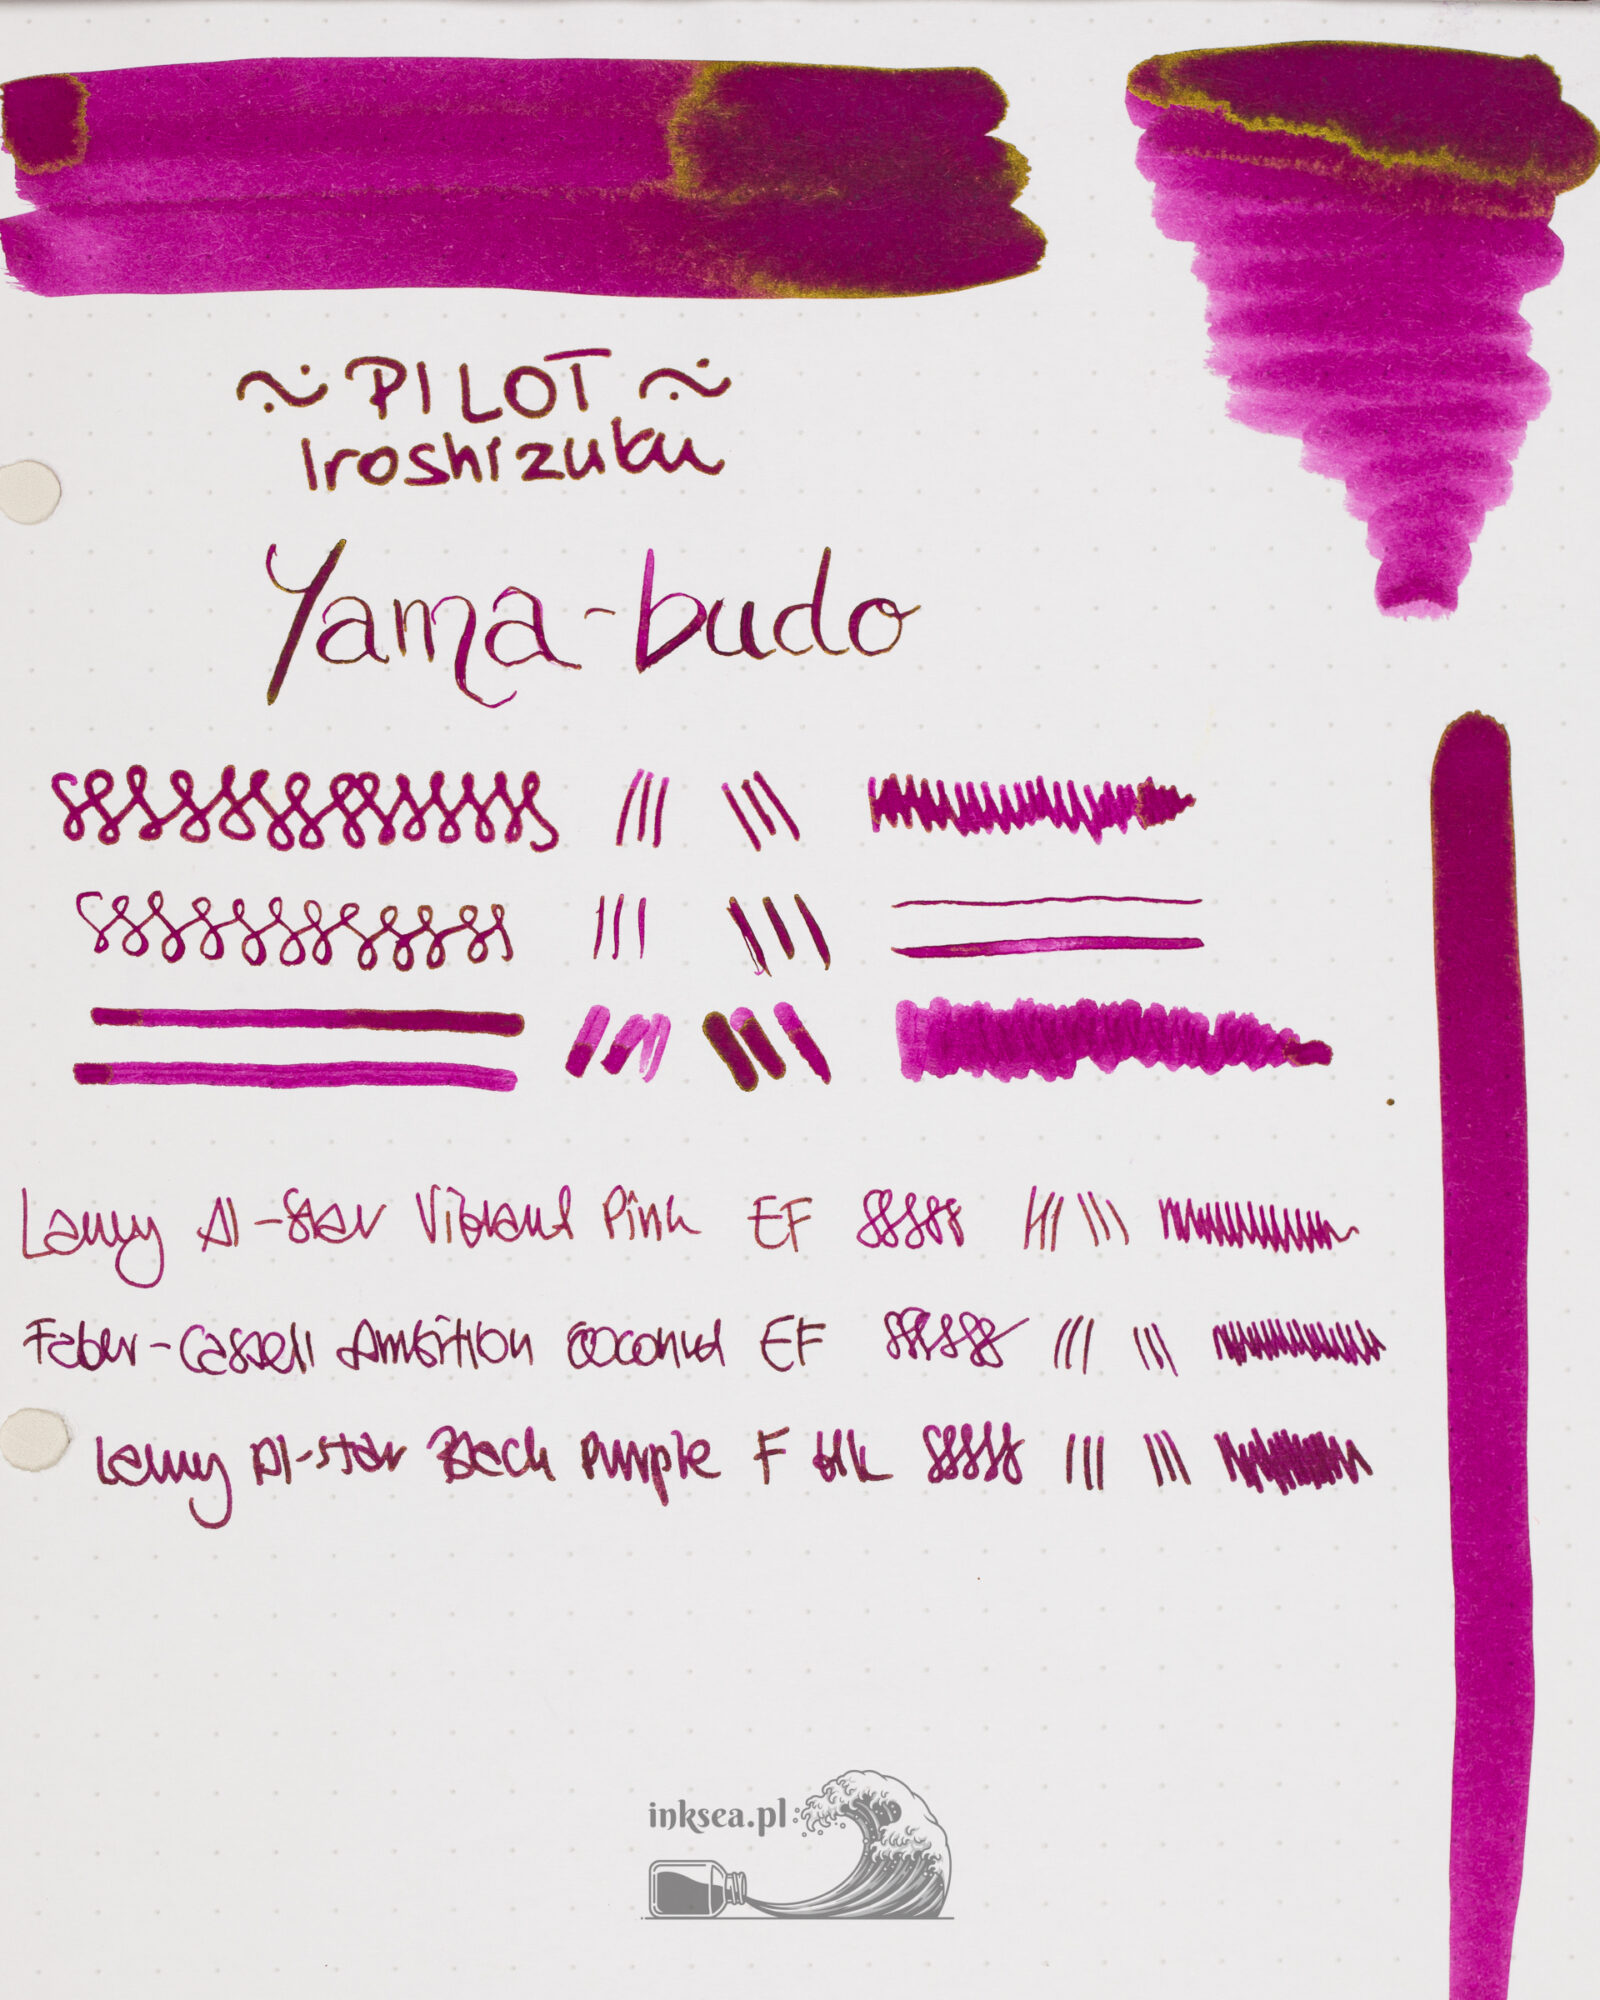 ~ PILOT ~
Iroshizuku
Yama-budo
Lamy Al-Star Vibrant Pink EF
Faber-Castell Ambition Coconut EF
Lamy Al-Star Black Purple F blk
inksea.pl